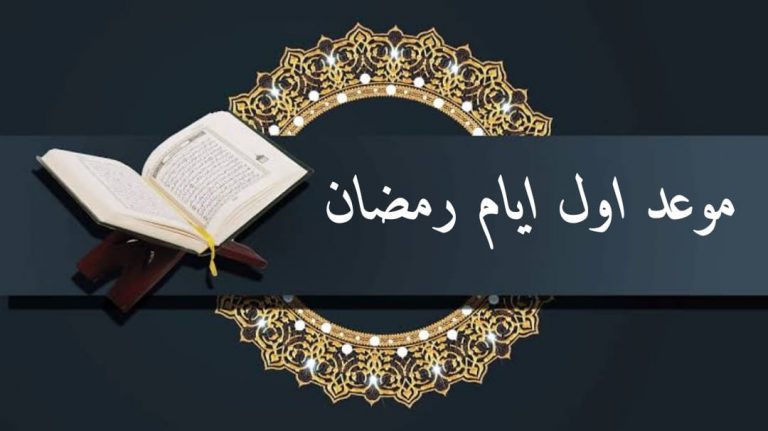 موعد اول ايام رمضان